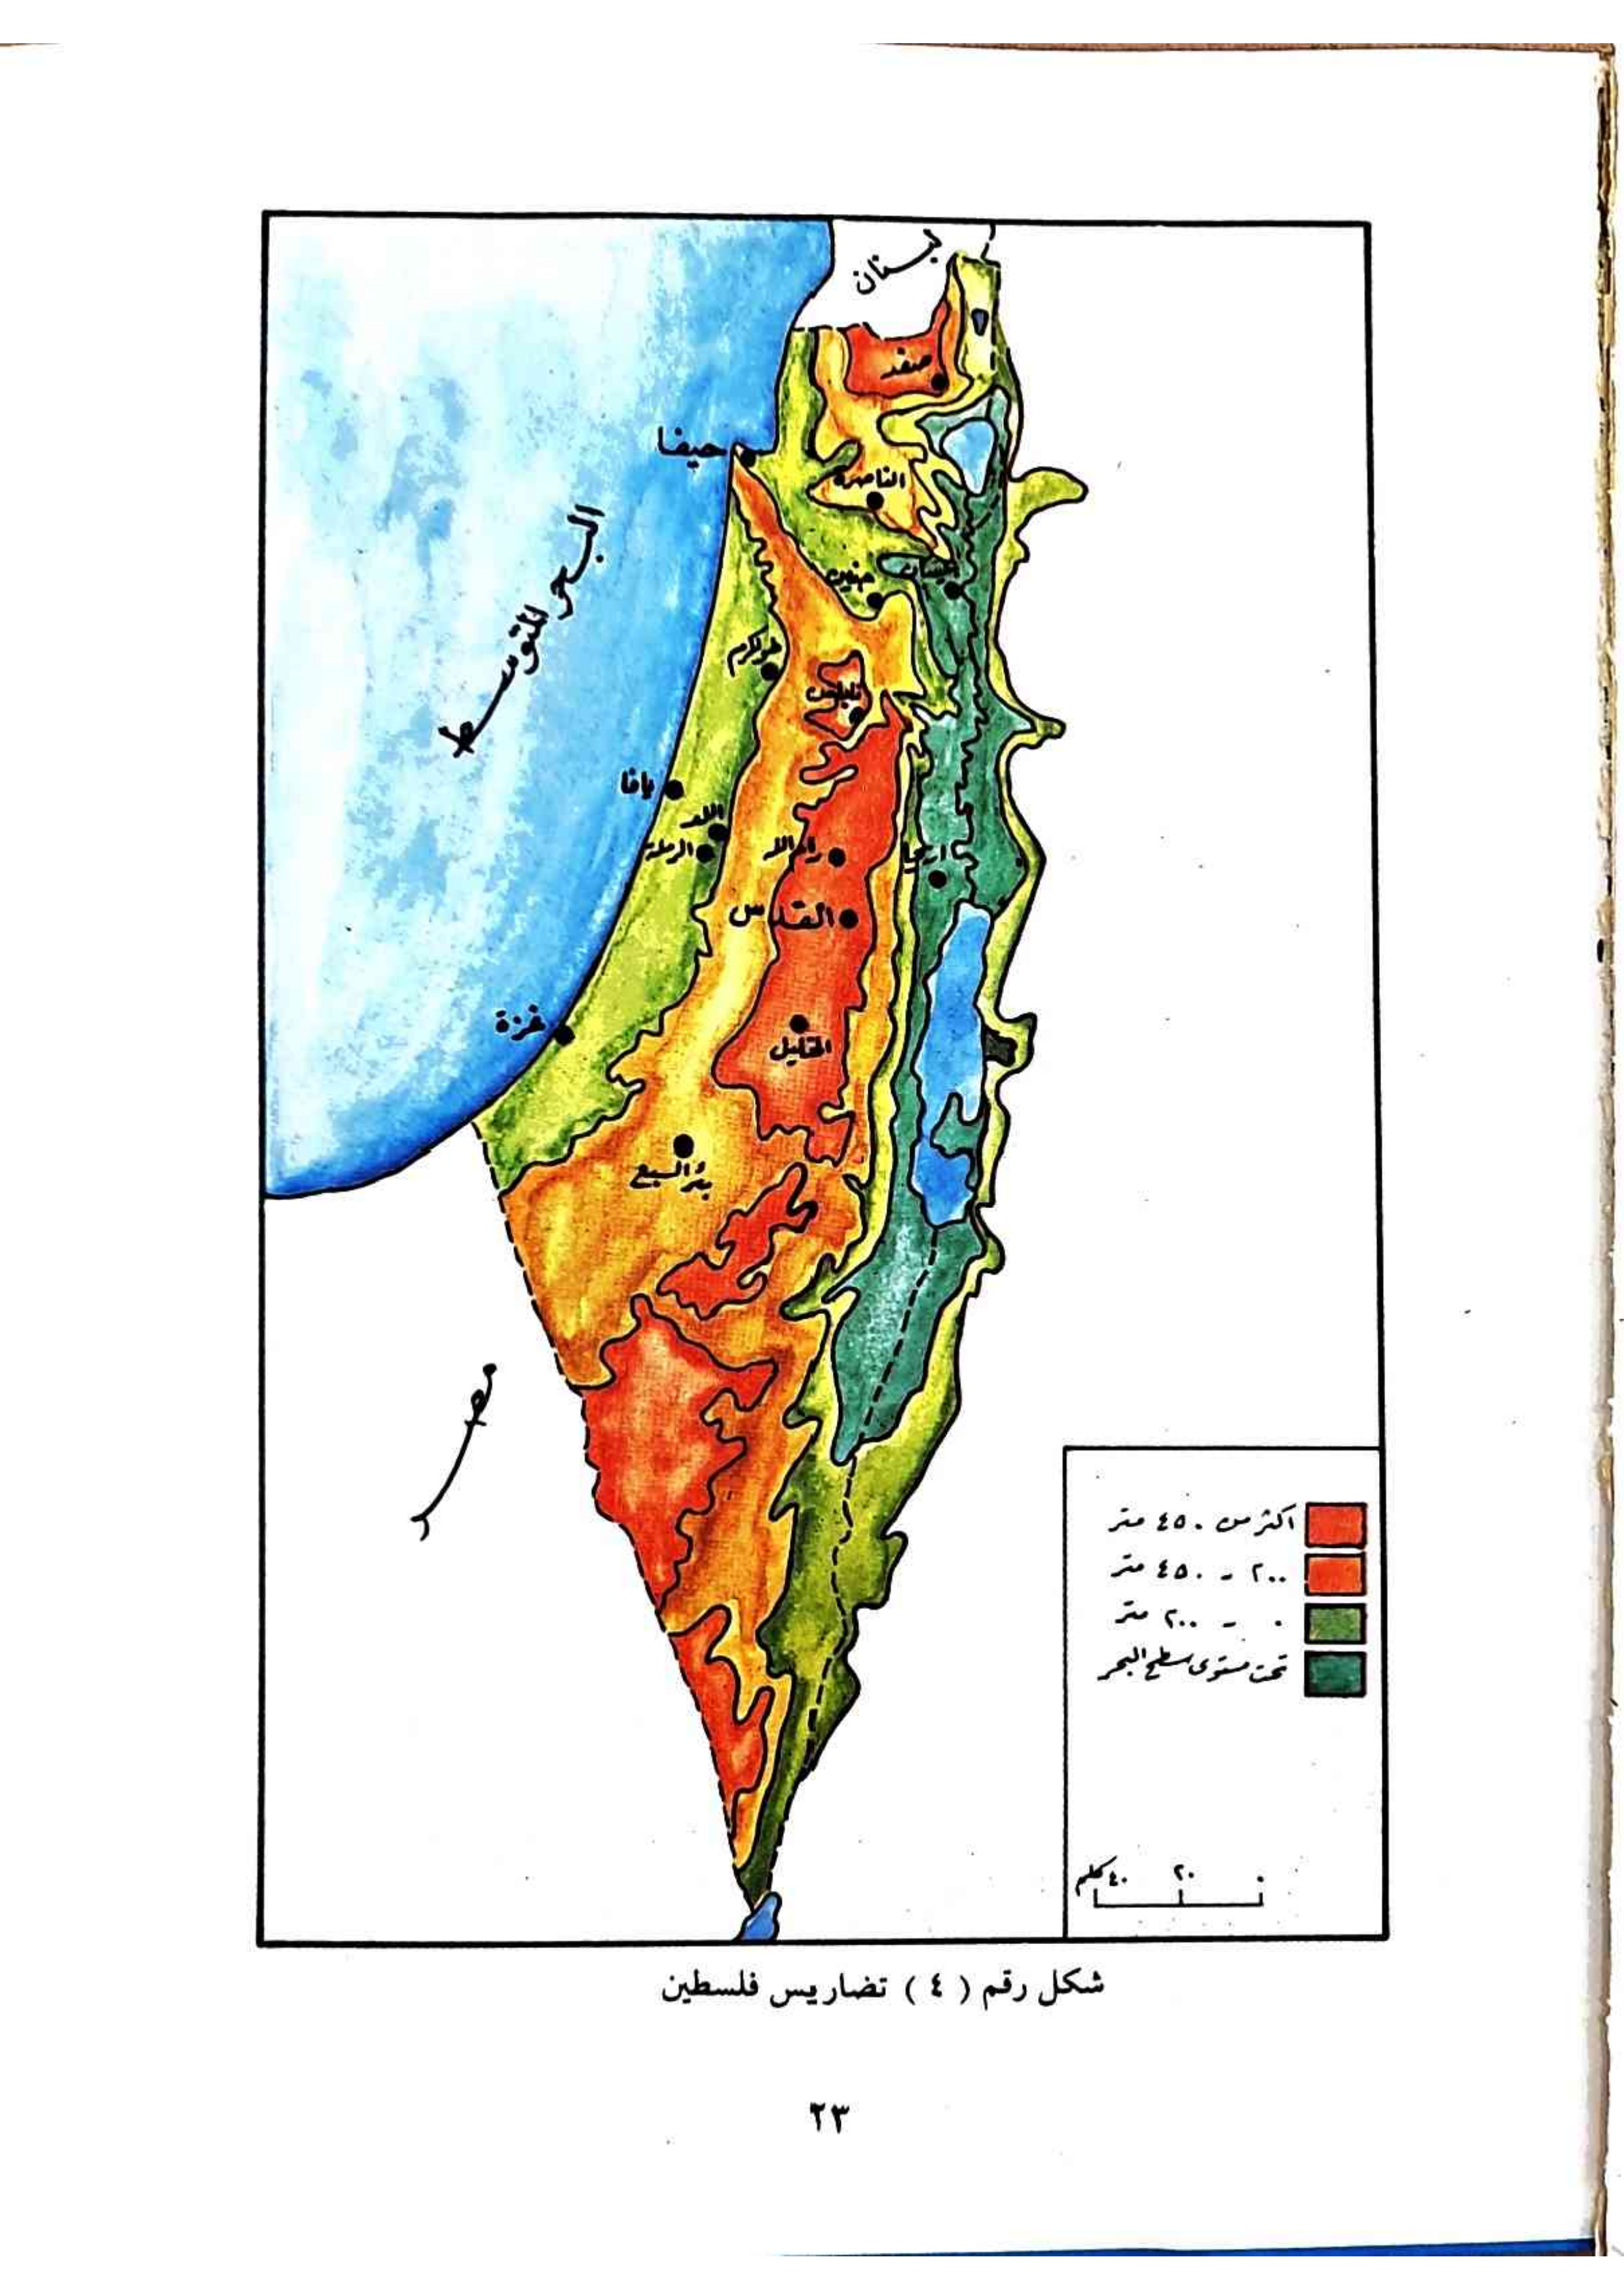 لبنان
صفد
حيفا
الناصرة
البحر المتوسط
جنين
بيسان
طولكرم
نابلس
يافا
اللد
الرملة
رام الله
اريحا
القدس
غزة
الخليل
بئر السبع
مصر
اكثر من ٤٥٠ متر
٢٠٠ - ٤٥٠ متر
٠ - ٢٠٠ متر
تحت مستوى سطح البحر
٤٠ كلم ٢٠ ٠
شكل رقم ( ٤ ) تضاريس فلسطين
٢٣